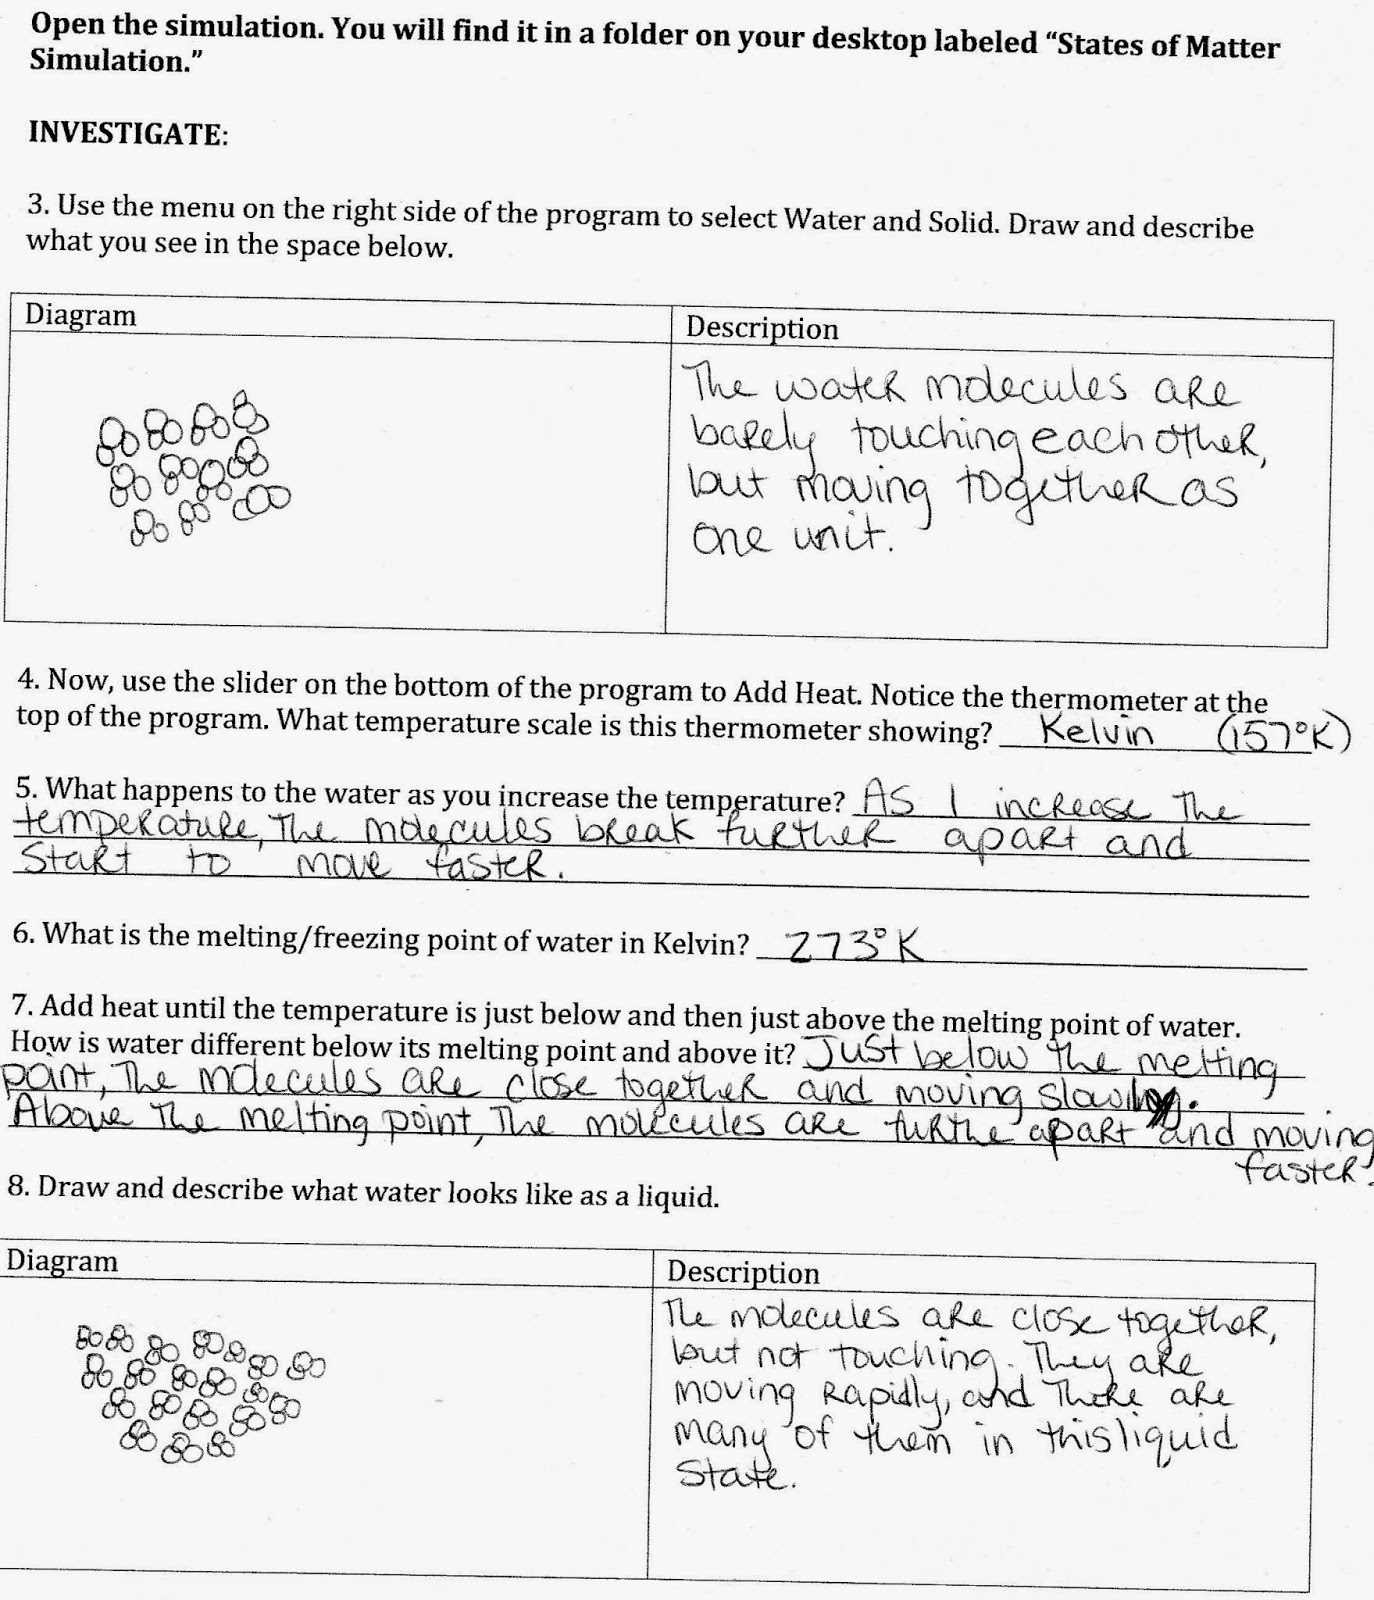 Open the simulation. You will find it in a folder on your desktop labeled “States of Matter
Simulation.”
INVESTIGATE:
3. Use the menu on the right side of the program to select Water and Solid. Draw and describe
what you see in the space below.
Diagram
Description
The water molecules are
barely touching each other,
but moving together as
one unit.
4. Now, use the slider on the bottom of the program to Add Heat. Notice the thermometer at the
top of the program. What temperature scale is this thermometer showing? Kelvin (157°K)
5. What happens to the water as you increase the temperature? As I increase the
temperature, the molecules break further apart and
start to move faster.
6. What is the melting/freezing point of water in Kelvin? 273°K
7. Add heat until the temperature is just below and then just above the melting point of water.
How is water different below its melting point and above it? Just below the melting
point, the molecules are close together and moving slowly.
Above the melting point, the molecules are furthe apart and moving
faster.
8. Draw and describe what water looks like as a liquid.
Diagram
Description
The molecules are close together,
but not touching. They are
moving rapidly, and there are
many of them in this liquid
state.